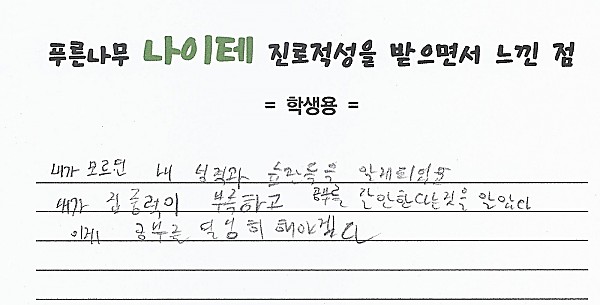 푸른나무 나이테 진로적성을 받으면서 느낀 점
= 학생용 =
내가 모르던 내 성격과 습관들을
내가 집중력이 부족하고 공부를 안한다는것을 알았다
이제 공부를 열심히 해야겠다